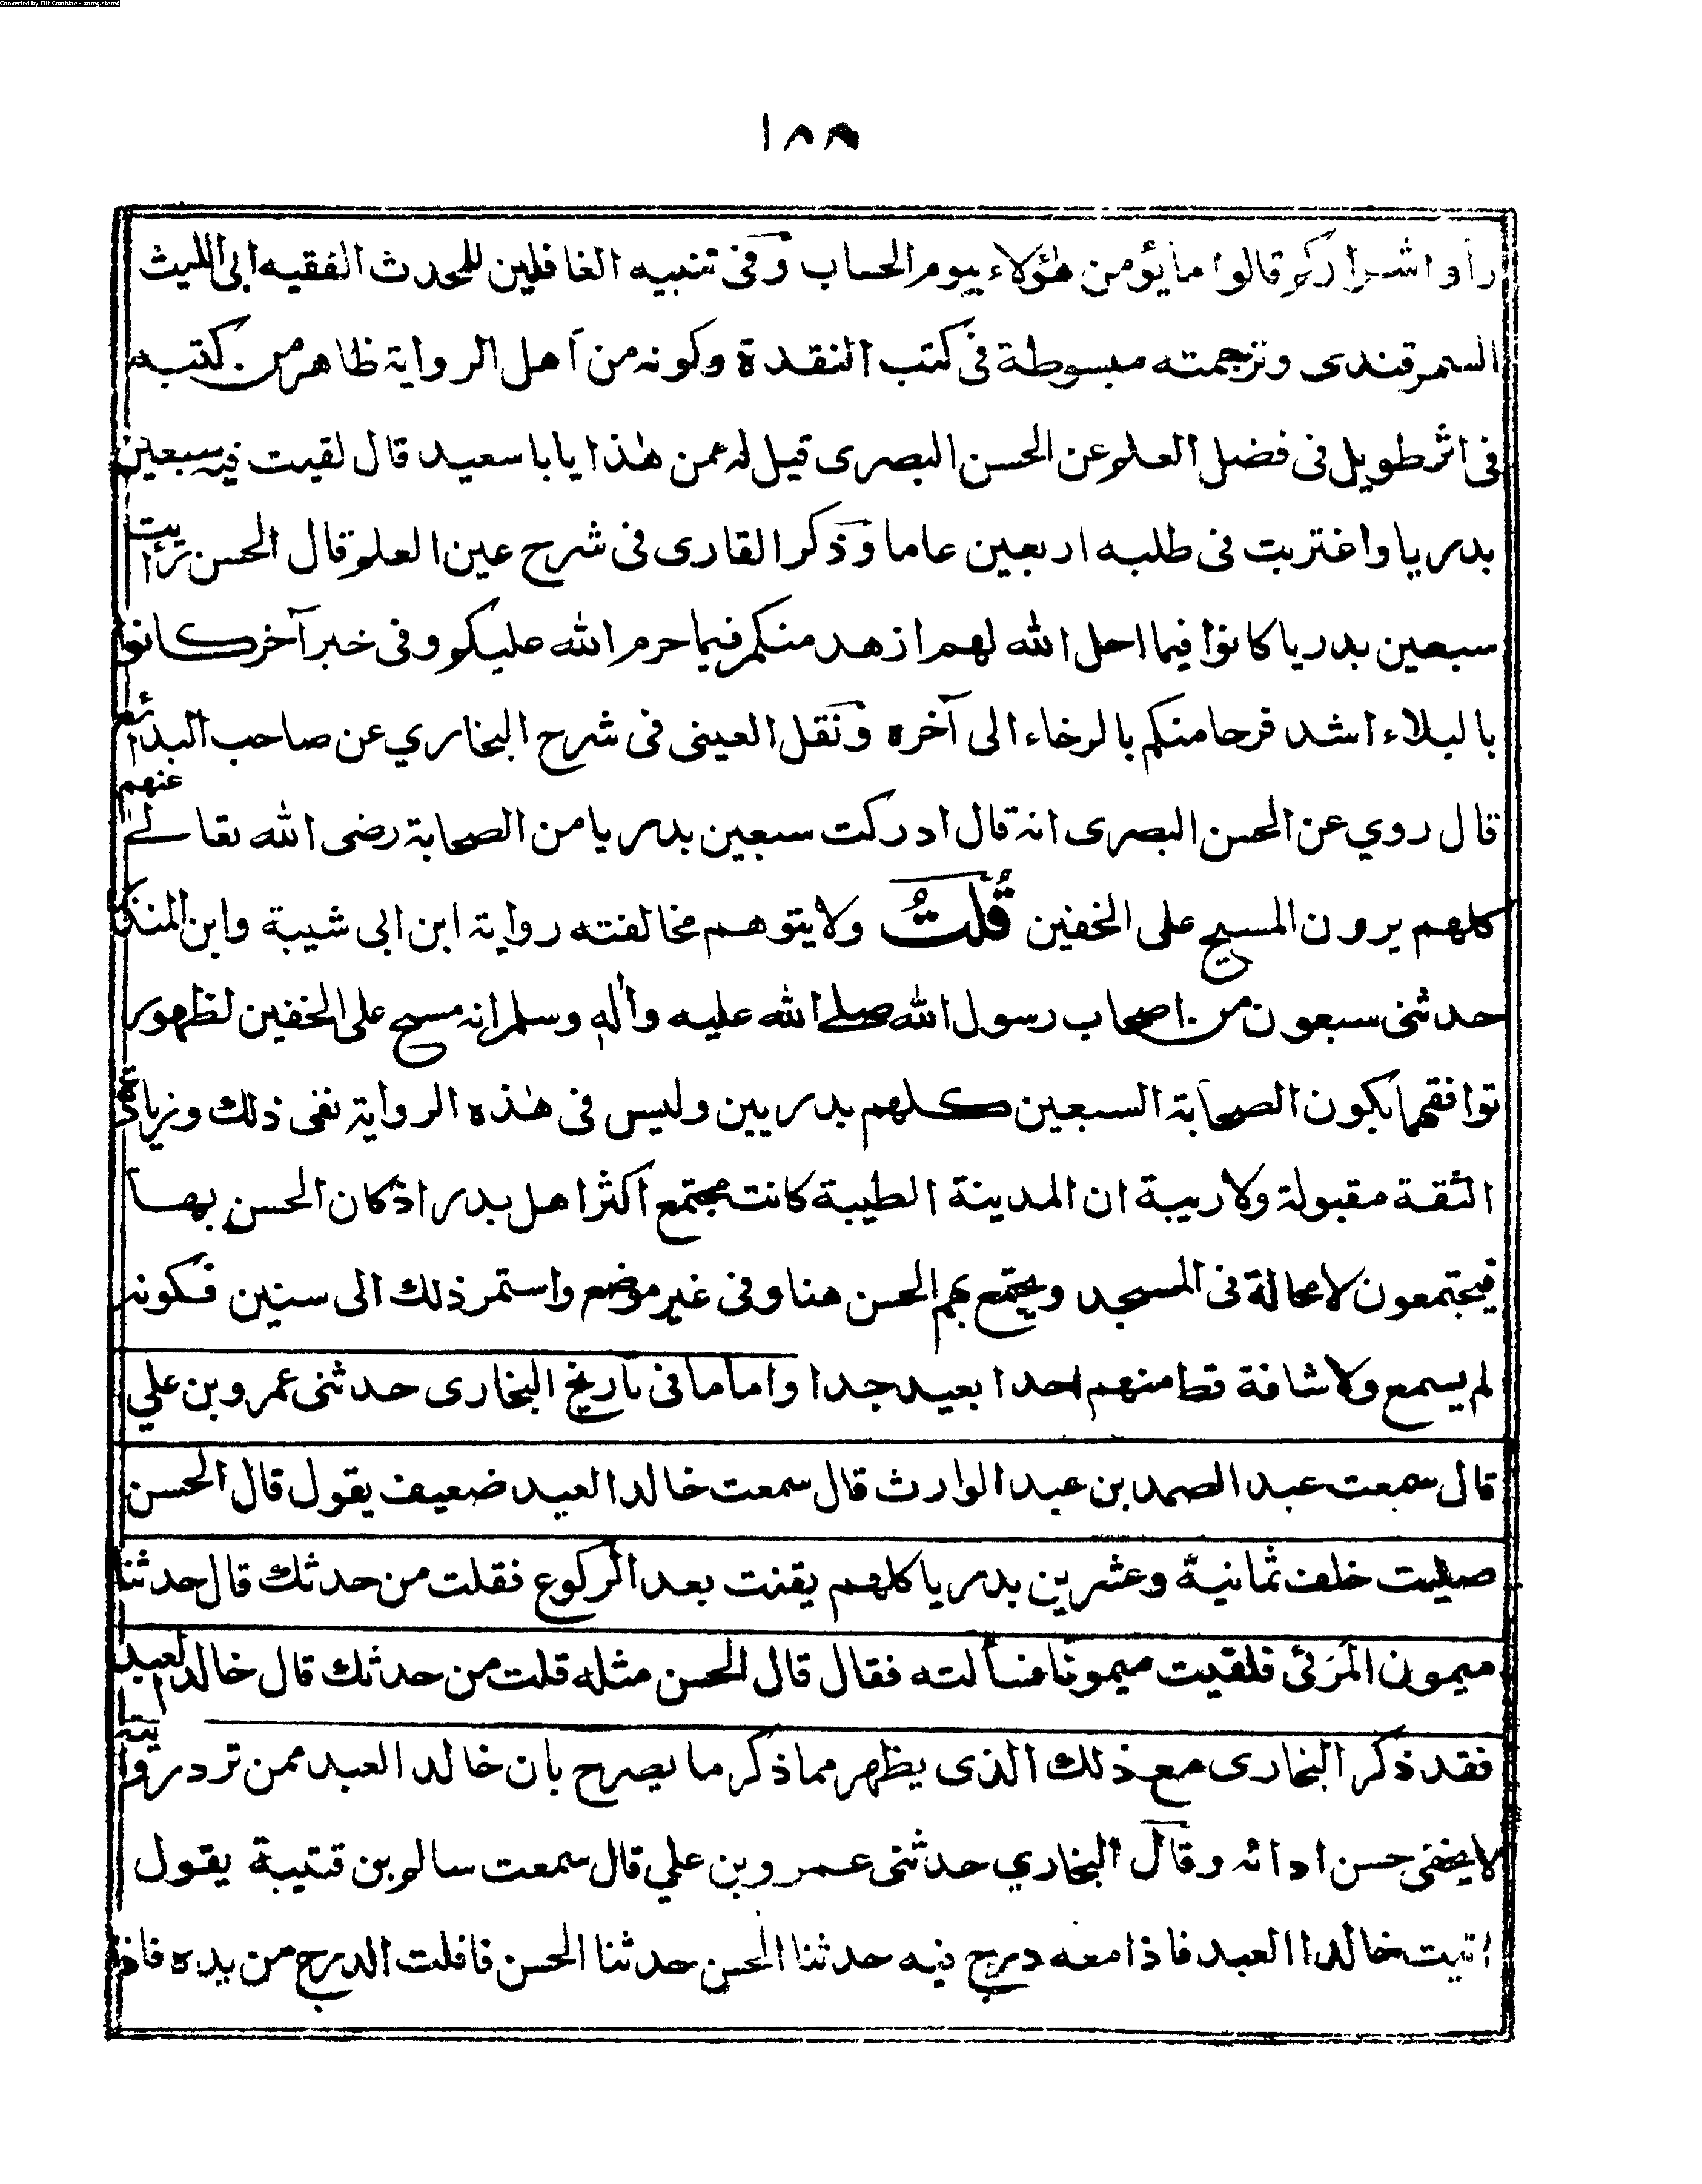 Converted by Tiff Combine - unregistered
١٨٨
رأوا شراركم قالوا ما يؤمن هٰؤلاء بيوم الحساب وفى تنبيه الغافلين للمحدث الفقيه ابى الليث
السمرقندى وترجمته مبسوطة فى كتب النقدة وكونه من اهل الرواية ظاهر من كتبه
فى اثر طويل فى فضل العلم عن الحسن البصرى قيل له عمن هٰذا يابا سعيد قال لقيت فيه سبعين
بدريا واغتربت فى طلبه اربعين عاما وذكر القارى فى شرح عين العلم قال الحسن رأيت
سبعين بدريا كانوا فيما احل الله لهم ازهد منكم فيما حرم الله عليكم وفى خبر آخر كانوا
بالبلاء اشد فرحا منكم بالرخاء الى آخره ونقل العينى فى شرح البخاري عن صاحب البدائع
قال روي عن الحسن البصرى انه قال ادركت سبعين بدريا من الصحابة رضى الله تعالى عنهم
كلهم يرون المسح على الخفين قُلتُ ولا يتوهم مخالفته رواية ابن ابى شيبة وابن المنذر
حدثنى سبعون من اصحاب رسول الله صلے الله عليه وأله وسلم انه مسح على الخفين لظهور
توافقهما بكون الصحابة السبعين كلهم بدريين وليس فى هٰذه الرواية نفى ذلك وزيادة
الثقة مقبولة ولا ريبة ان المدينة الطيبة كانت مجتمع اكثر اهل بدر اذ كان الحسن بها
فيجتمعون لا محالة فى المسجد ويجتمع بهم الحسن هنا وفى غير موضع واستمر ذلك الى سنين فكونه
لم يسمع ولا شافة قط منهم احدا بعيد جدا واما ما فى تاريخ البخارى حدثنى عمرو بن علي
قال سمعت عبد الصمد بن عبد الوارث قال سمعت خالد العبد ضعيف يقول قال الحسن
صليت خلف ثمانية وعشرين بدريا كلهم يقنت بعد الركوع فقلت من حدثك قال حدثنا
ميمون المَرَئى فلقيت ميمونا فسألته فقال قال الحسن مثله قلت من حدثك قال خالد العبد
فقد ذكر البخارى مع ذلك الذى يظهر مما ذكر ما يصرح بان خالد العبد ممن ترد روايته
لا يخفى حسن ادائه وقال البخاري حدثنى عمرو بن علي قال سمعت سالم بن قتيبة يقول
اتيت خالدا العبد فاذا معه درج فيه حدثنا الحسن حدثنا الحسن فافلت الدرج من يده فاذا